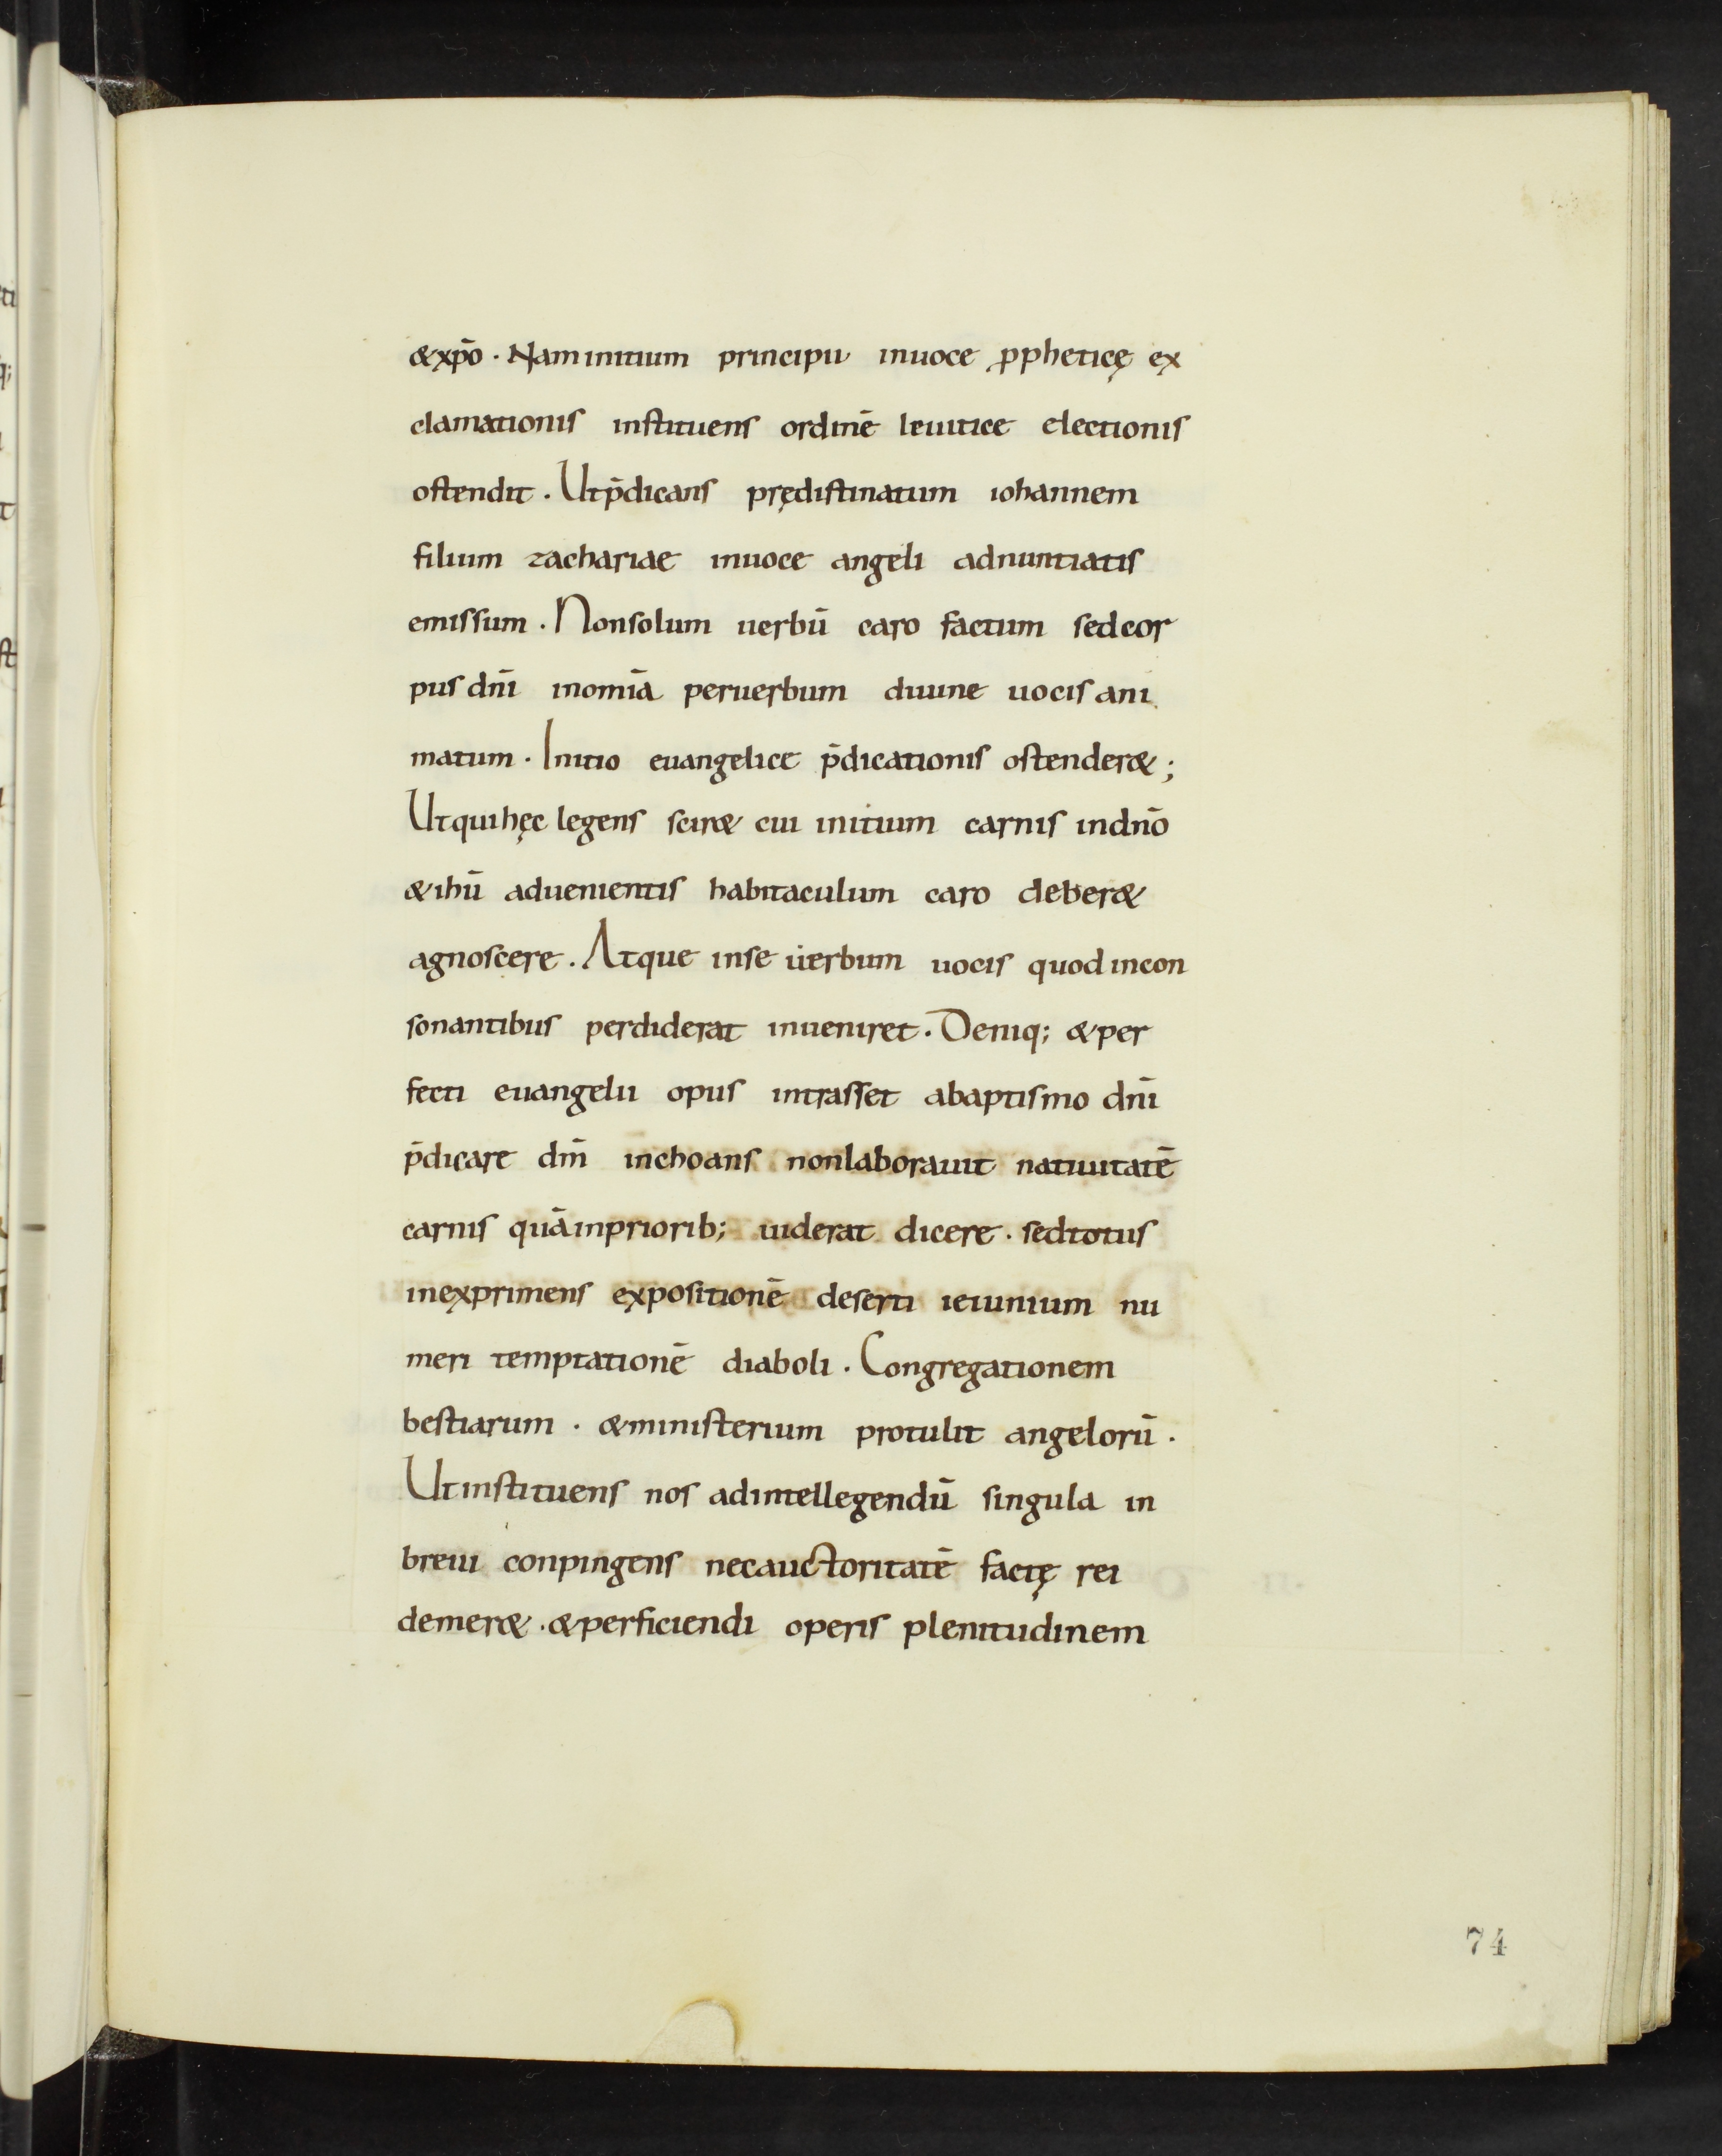 &xp̄o · Nam initium principii inuoce ꝓpheticę ex
clamationis instituens ordinē leuitice electionis
ostendit . Ut p̄dicans prędistinatum iohannem
filium zachariae inuoce angeli adnuntiatis
emissum . Non solum uerbū caro factum sed cor
pus dn̄i inomīa per uerbum diuine uocis ani
matum . Initio euangelice p̄dicationis ostender& ;
Ut qui hęc legens scir& cui initium carnis indn̄o
& ihū aduenientis habitaculum caro deber&
agnoscere . Atque inse uerbum uocis quod incon
sonantibus perdiderat inueniret . Deniq; & per
fecti euangelii opus intrasset abaptismo dn̄i
p̄dicare dm̄ inchoans non laborauit natiuitatē
carnis quā inpriorib; uiderat dicere . sed totus
inexprimens expositionē deserti ieiunium nu
meri temptationē diaboli . Congregationem
bestiarum . & ministerium protulit angelorū .
Ut instituens nos ad intellegendū singula in
breui conpingens nec auctoritatē factę rei
demer& . & perficiendi operis plenitudinem
74